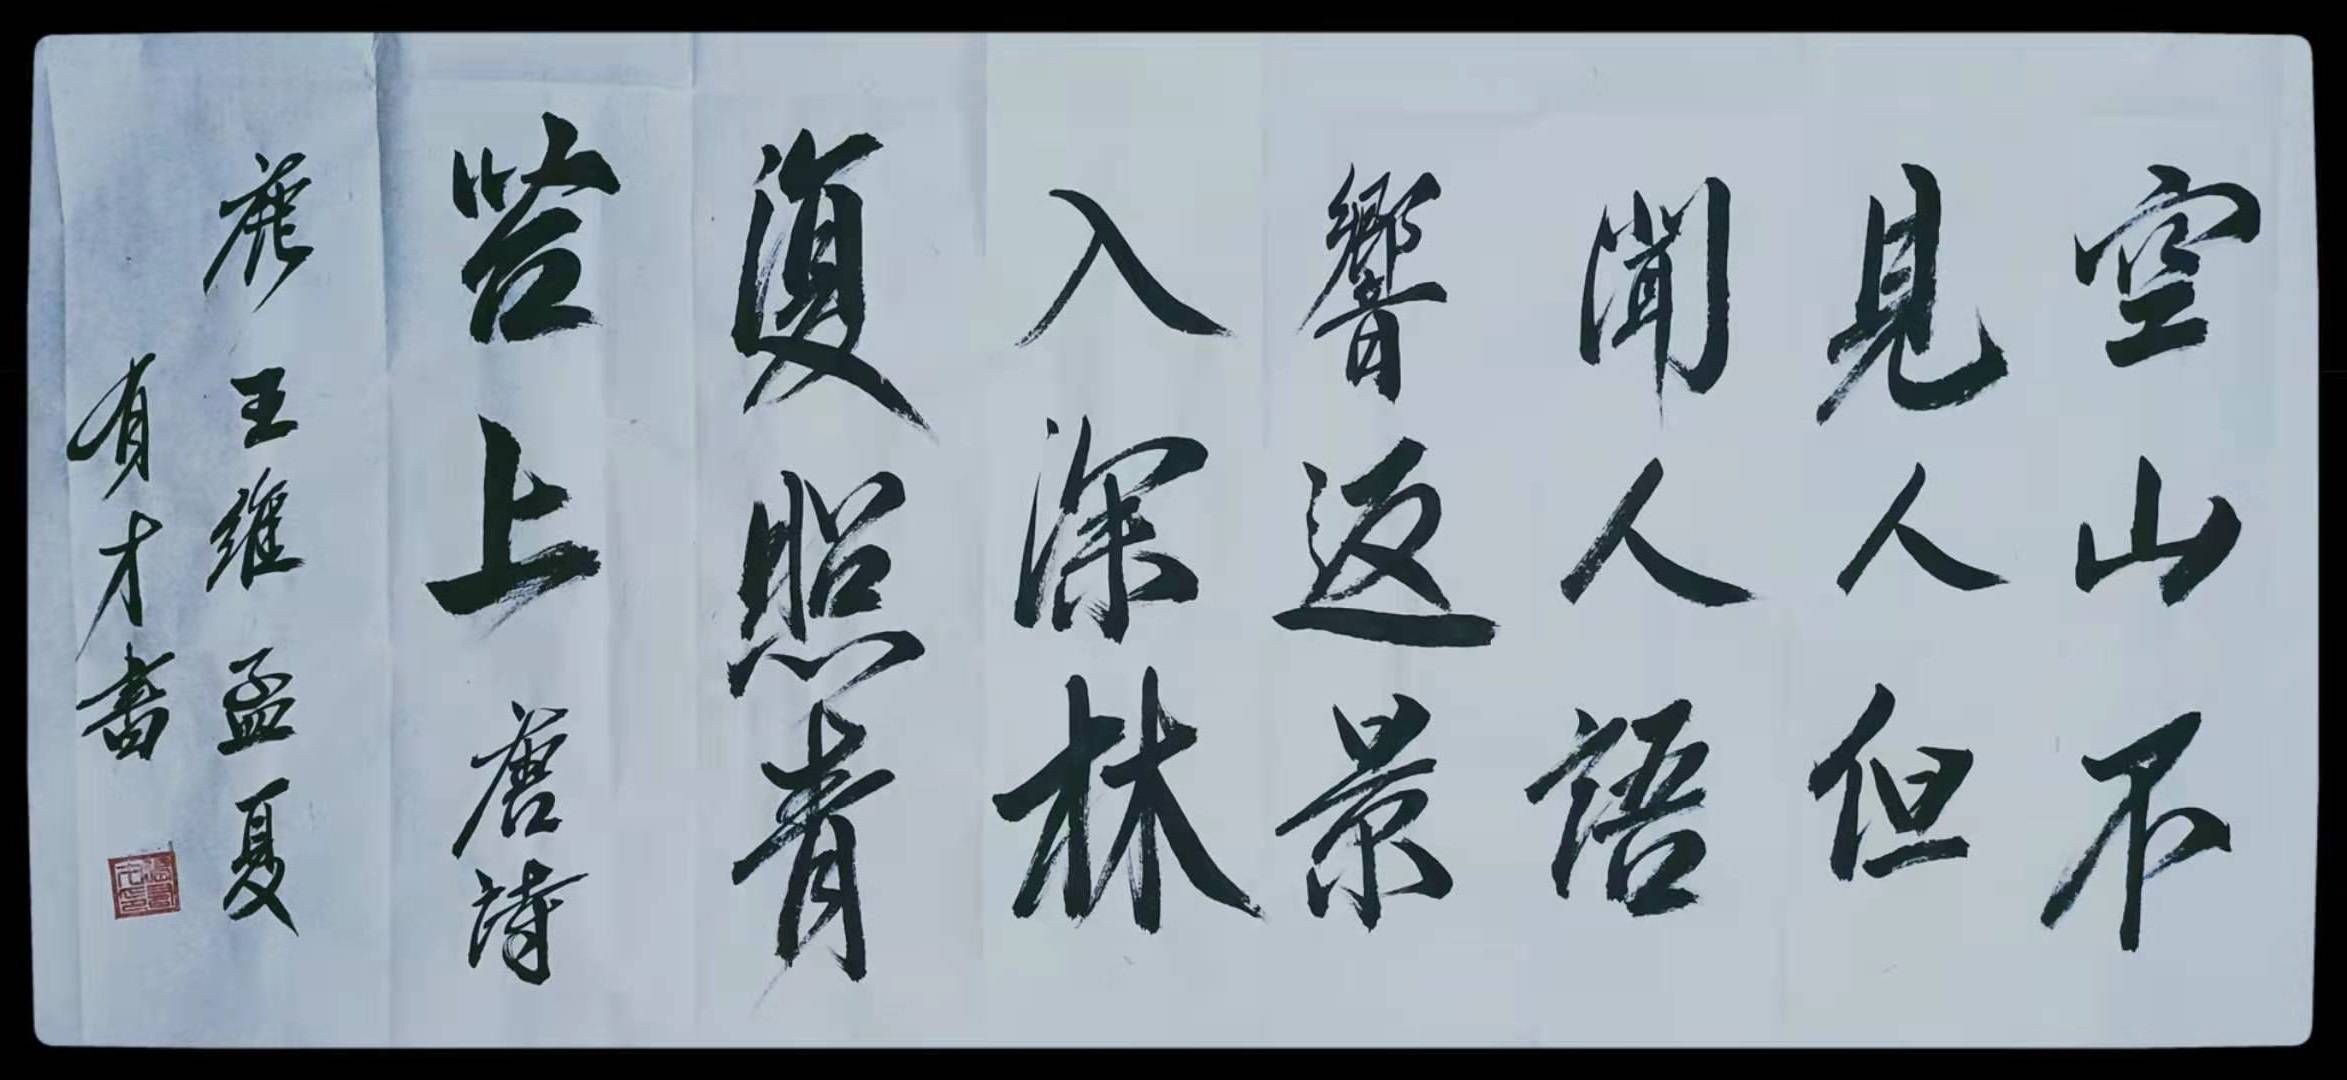 空山不
見人但
聞人語
響返景
入深林
復照青
苔上 唐詩
鹿 王維 孟夏
有才書